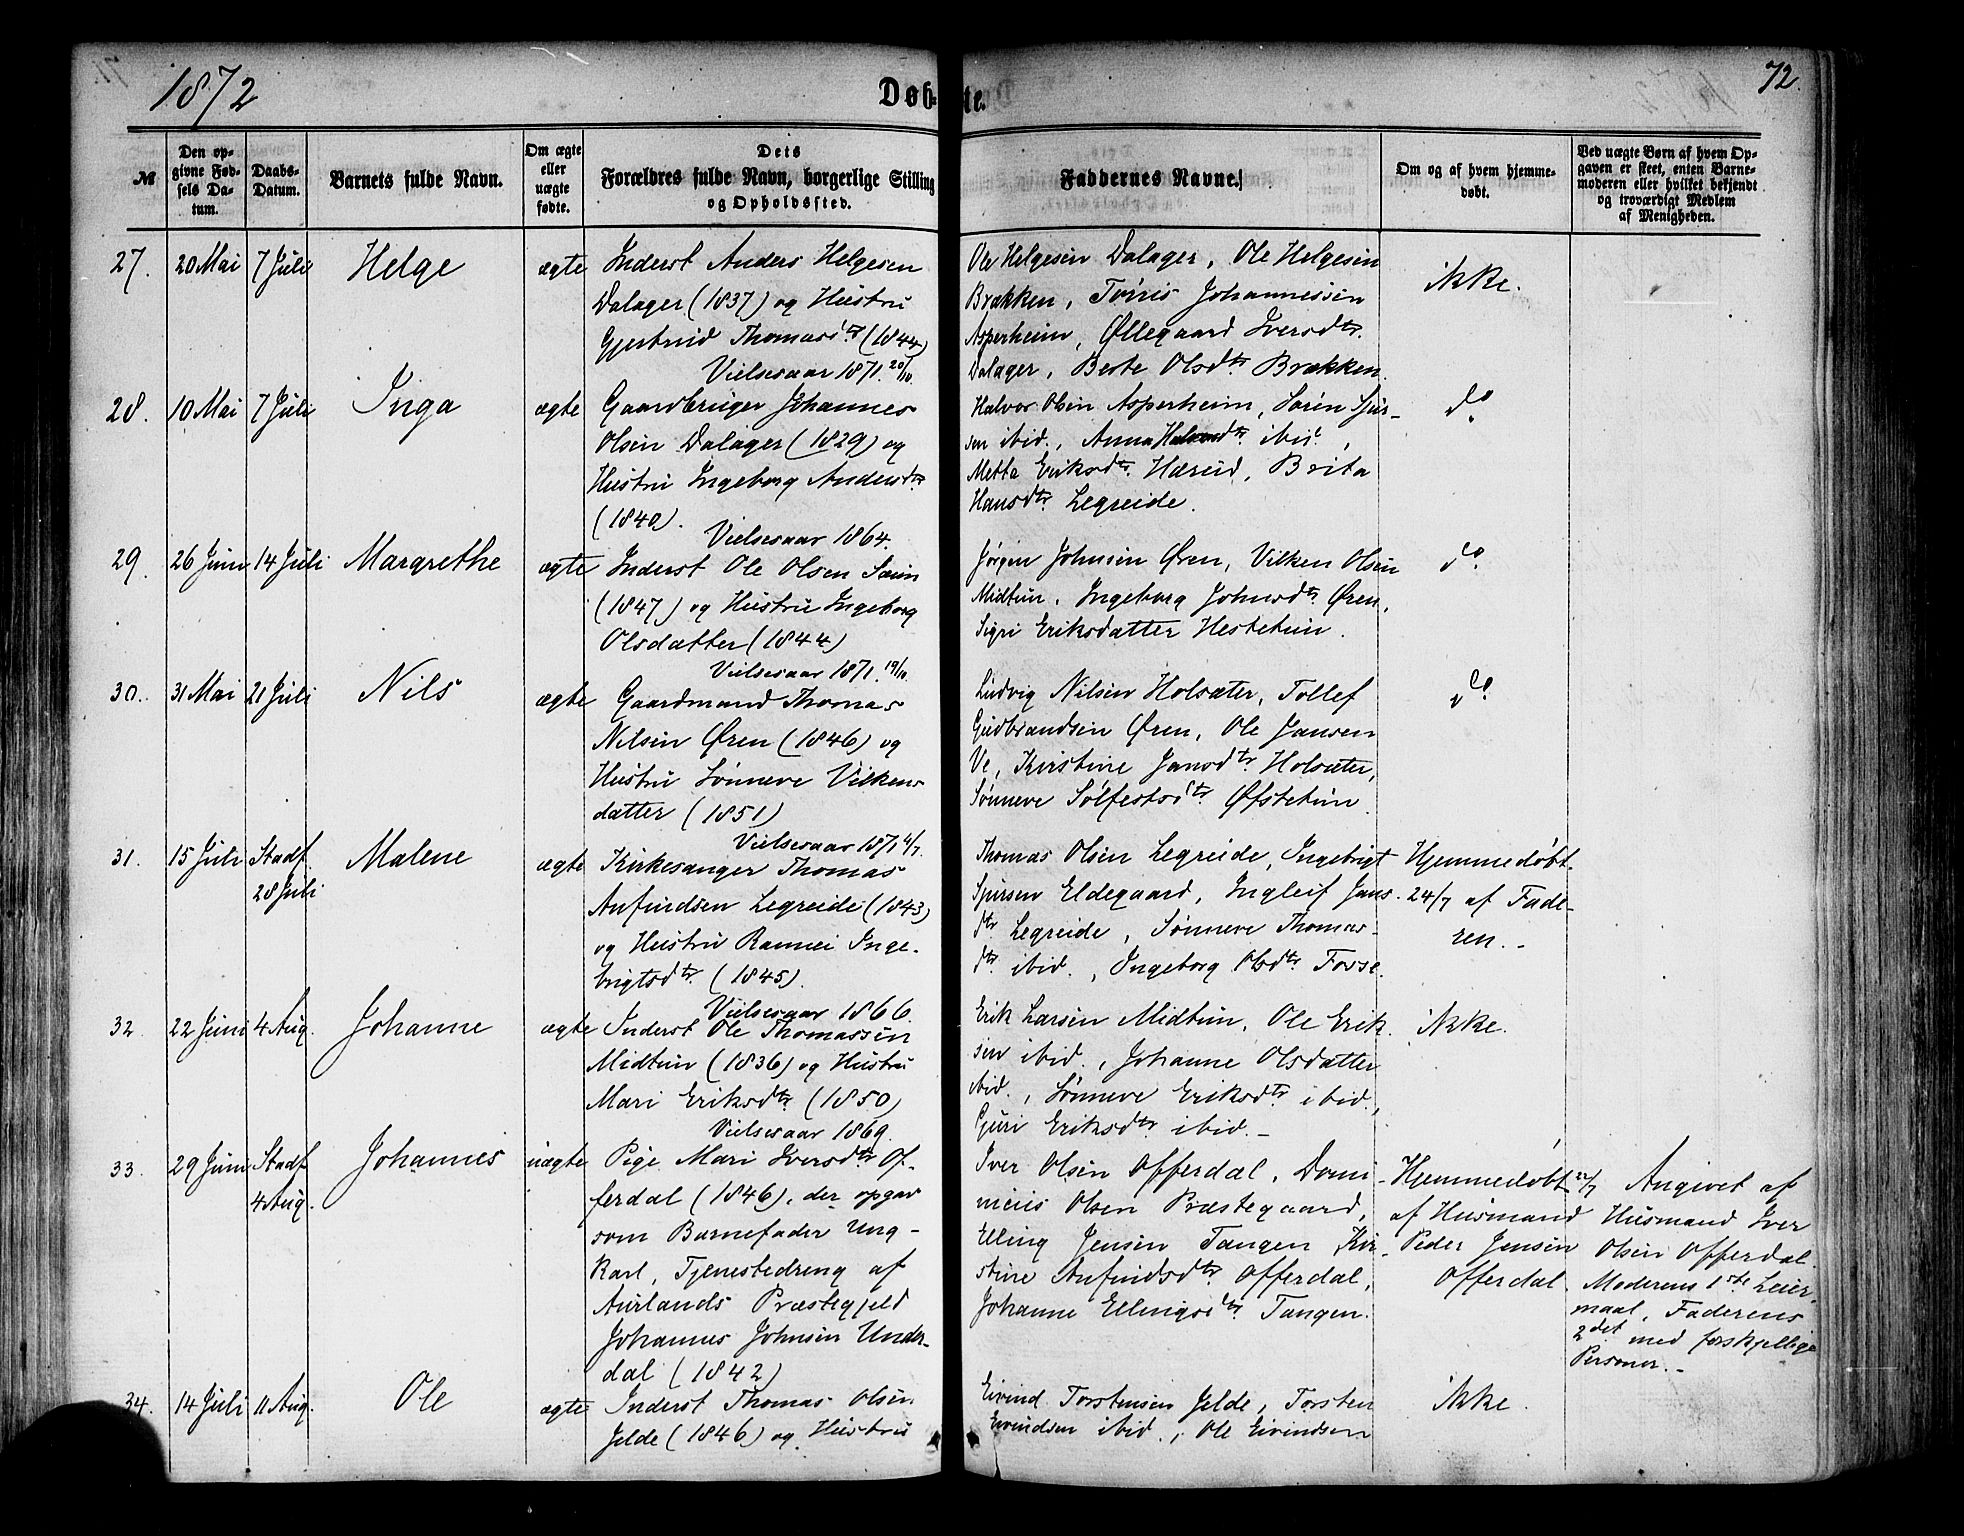 1872
Døb-
te.
72.
№
Den op-
givne Fød-
sels Da-
tum.
Daabs-
Datum.
Barnets fulde Navn.
Om ægte
eller
uægte
fødte.
Dets
Forældres fulde Navn, borgerlige Stilling
og Opholdssted.
Faddernes Navne.
Om og af hvem hjemme-
døbt.
Ved uægte Børn af hvem Op-
gaven er skeet, enten Barne-
moderen eller hvilket bekjendt
og troværdigt Medlem
af Menigheden.
27. 20 Mai 7 Juli Helge ægte Inderst Anders Helgesen
Dalager (1837) og Hustru
Gjertrud Thomasdtr (1844)
Vielsesaar 1871. 20/10.
Ole Helgesen Dalager, Ole Helgesen
Brækken, Tørris Johannessen
Asperheim, Øllegaard Iversdtr.
Dalager, Beste Olsdtr Brækken.
ikke.
28. 10 Mai 7 Juli Inga ægte Gaardbruger Johannes
Olsen Dalager (1829) og
Hustru Ingeborg Andersdtr.
(1840).
Vielsesaar 1864.
Halvor Olsen Asperheim, Søren Sjur-
sen ibid., Anna Halvorsdtr. ibid.,
Metta Eriksdtr. Hærud, Brita
Hansdtr. Legreide.
do.
29. 26 Juni 14 Juli Margrethe ægte Inderst Ole Olsen
(1847) og Hustru Ingeborg
Olsdatter (1844)
Vielsesaar 1871. 19/10.
Jørgen Johnsen Øren, Vilken Olsen
Midtun, Ingeborg Johnsdtr. Øren,
Sigri Eriksdatter Hestetun.
do.
30. 31 Mai 21 Juli Nils ægte Gaardmand Thomas
Nilsen Øren (1846) og
Hustru Sønneve Vilkens-
datter (1851)
Vielsesaar 1871 4/7.
Ludvig Nilsen Holsæter, Tollef
Gudbrandsen Øren, Ole Jansen
Ve, Kirstine Jansdtr. Holsæter,
Sønneve Sølfestsdtr. Øfstetun.
do.
31. 15 Juli Stadf. Malene ægte Kirkesanger Thomas
28 Juli
Anfindsen Legreide (1843)
og Hustru Rannei Inge-
brigtsdtr. (1845).
Vielsesaar 1866.
Thomas Olsen Legreide, Ingebrigt
Sjursen Eldegaard, Ingleif Jans-
dtr. Legreide, Sønneve Thomas-
dtr. ibid., Ingeborg Olsdtr. Fosse.
Hjemmedøbt
24/7 af Fade-
ren.-
32 22 Juni 4 Aug. Johanne ægte Inderst Ole Thomassen
Midtun (1836) og Hustru
Mari Eriksdtr. (1850)
Vielsesaar 1869.
Erik Larsen Midtun, Ole Erik-
sen ibid., Johanne Olsdatter
ibid., Sønneve Eriksdtr. ibid.,
Guri Eriksdtr. ibid.-
ikke.
33. 29 Juni Stadf. Johannes uægte Pige Mari Iversdtr. Of-
4 Aug.
ferdal (1846), der opgav
som Barnefader Ung-
karl, Tjenestedreng af
Aurlands Præstegjeld
Johannes Johnsen Under-
dal (1842)
Iver Olsen Offerdal, Domi-
nicus Olsen Præstegaard,
Elling Jensen Tangen, Kir-
stine Anfindsdtr. Offerdal,
Johanne Ellingsdtr. Tangen.
Hjemmedøbt 22/7
af Husmand
Peder Jensen
Offerdal
Angivet af
Husmand Iver
Olsen Offerdal.
Moderens 1ste Leier-
maal, Faderens
2det med forskjellige
Personer.-
34. 14 Juli 11 Aug. Ole ægte Inderst Thomas Olsen
Jelde (1846) og Hustru
Eivind Torstensen Jelde, Torsten
Eivindsen ibid., Ole Eivindsen
ikke.